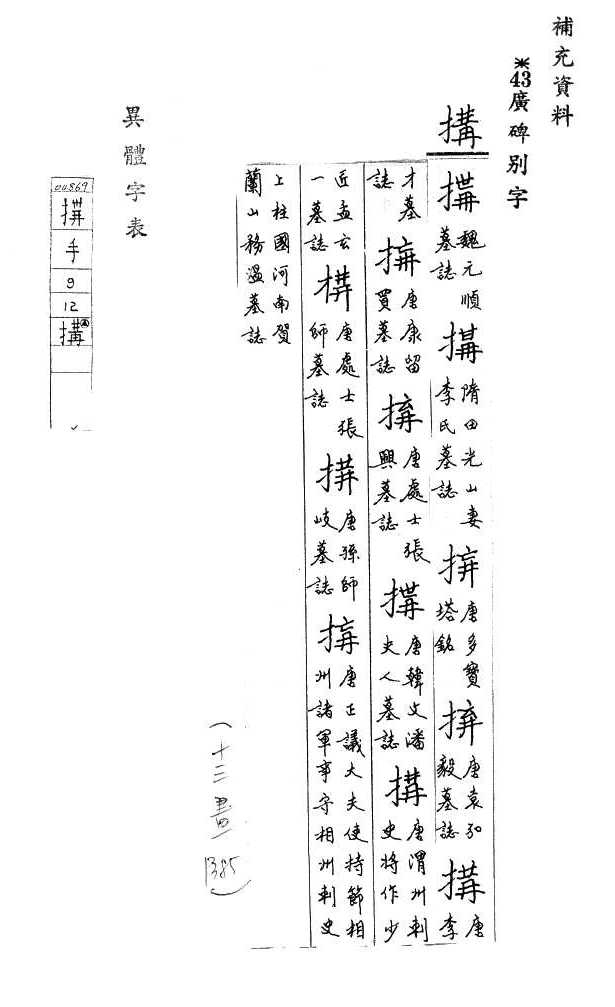 補充資料
※43廣碑別字
搆
搆 魏元順墓誌 搆 隋田光山妻李氏墓誌 搆 唐多寶塔銘 搆 唐袁弘毅墓誌 搆 唐李
才墓誌 搆 唐康留買墓誌 搆 唐處士張興墓誌 搆 唐韓文潘夫人墓誌 搆 唐渭州刺史將作少
匠孟玄一墓誌 構 唐處士張師墓誌 搆 唐孫師岐墓誌 搆 唐正議大夫使持節相州諸軍事守相州刺史
上柱國河南賀蘭山務溫墓誌
(十三畫)
1385
異體字表
00869
搆
手
9
12
搆